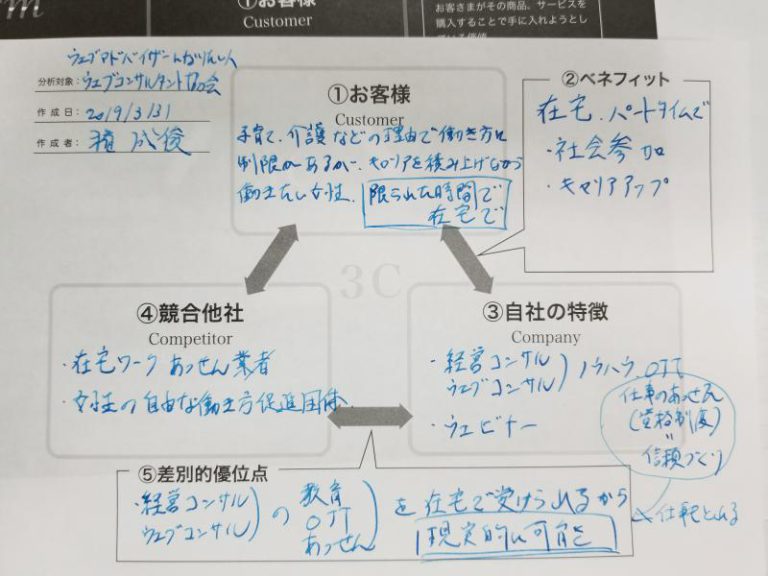 ①お客様
Customer
お客さまがその商品、サービスを
購入することで手に入れようとし
ている価値
分析対象：ウェブコンサルタント協会
作成日：2019/3/31
作成者：
①お客様
Customer
子育て、介護などの理由で働き方に
制限があるが、キャリアを積み上げながら
働きたい女性。限られた時間で
在宅で
②ベネフィット
在宅、パートタイムで
・社会参加
・キャリアアップ
3C
④競合他社
Competitor
・在宅ワークあっせん業者
・女性の自由な働き方促進団体
③自社の特徴
Company
・経営コンサル
ウェブコンサル
ノウハウ、OJT
・ウェビナー
仕事のあっせん
(資格制度)
〃
信頼づくり
⑤差別的優位点
・経営コンサル
ウェブコンサル
の
教育
OJT
あっせん
を在宅で受けられるから
現実的に可能を
仕事をとれる